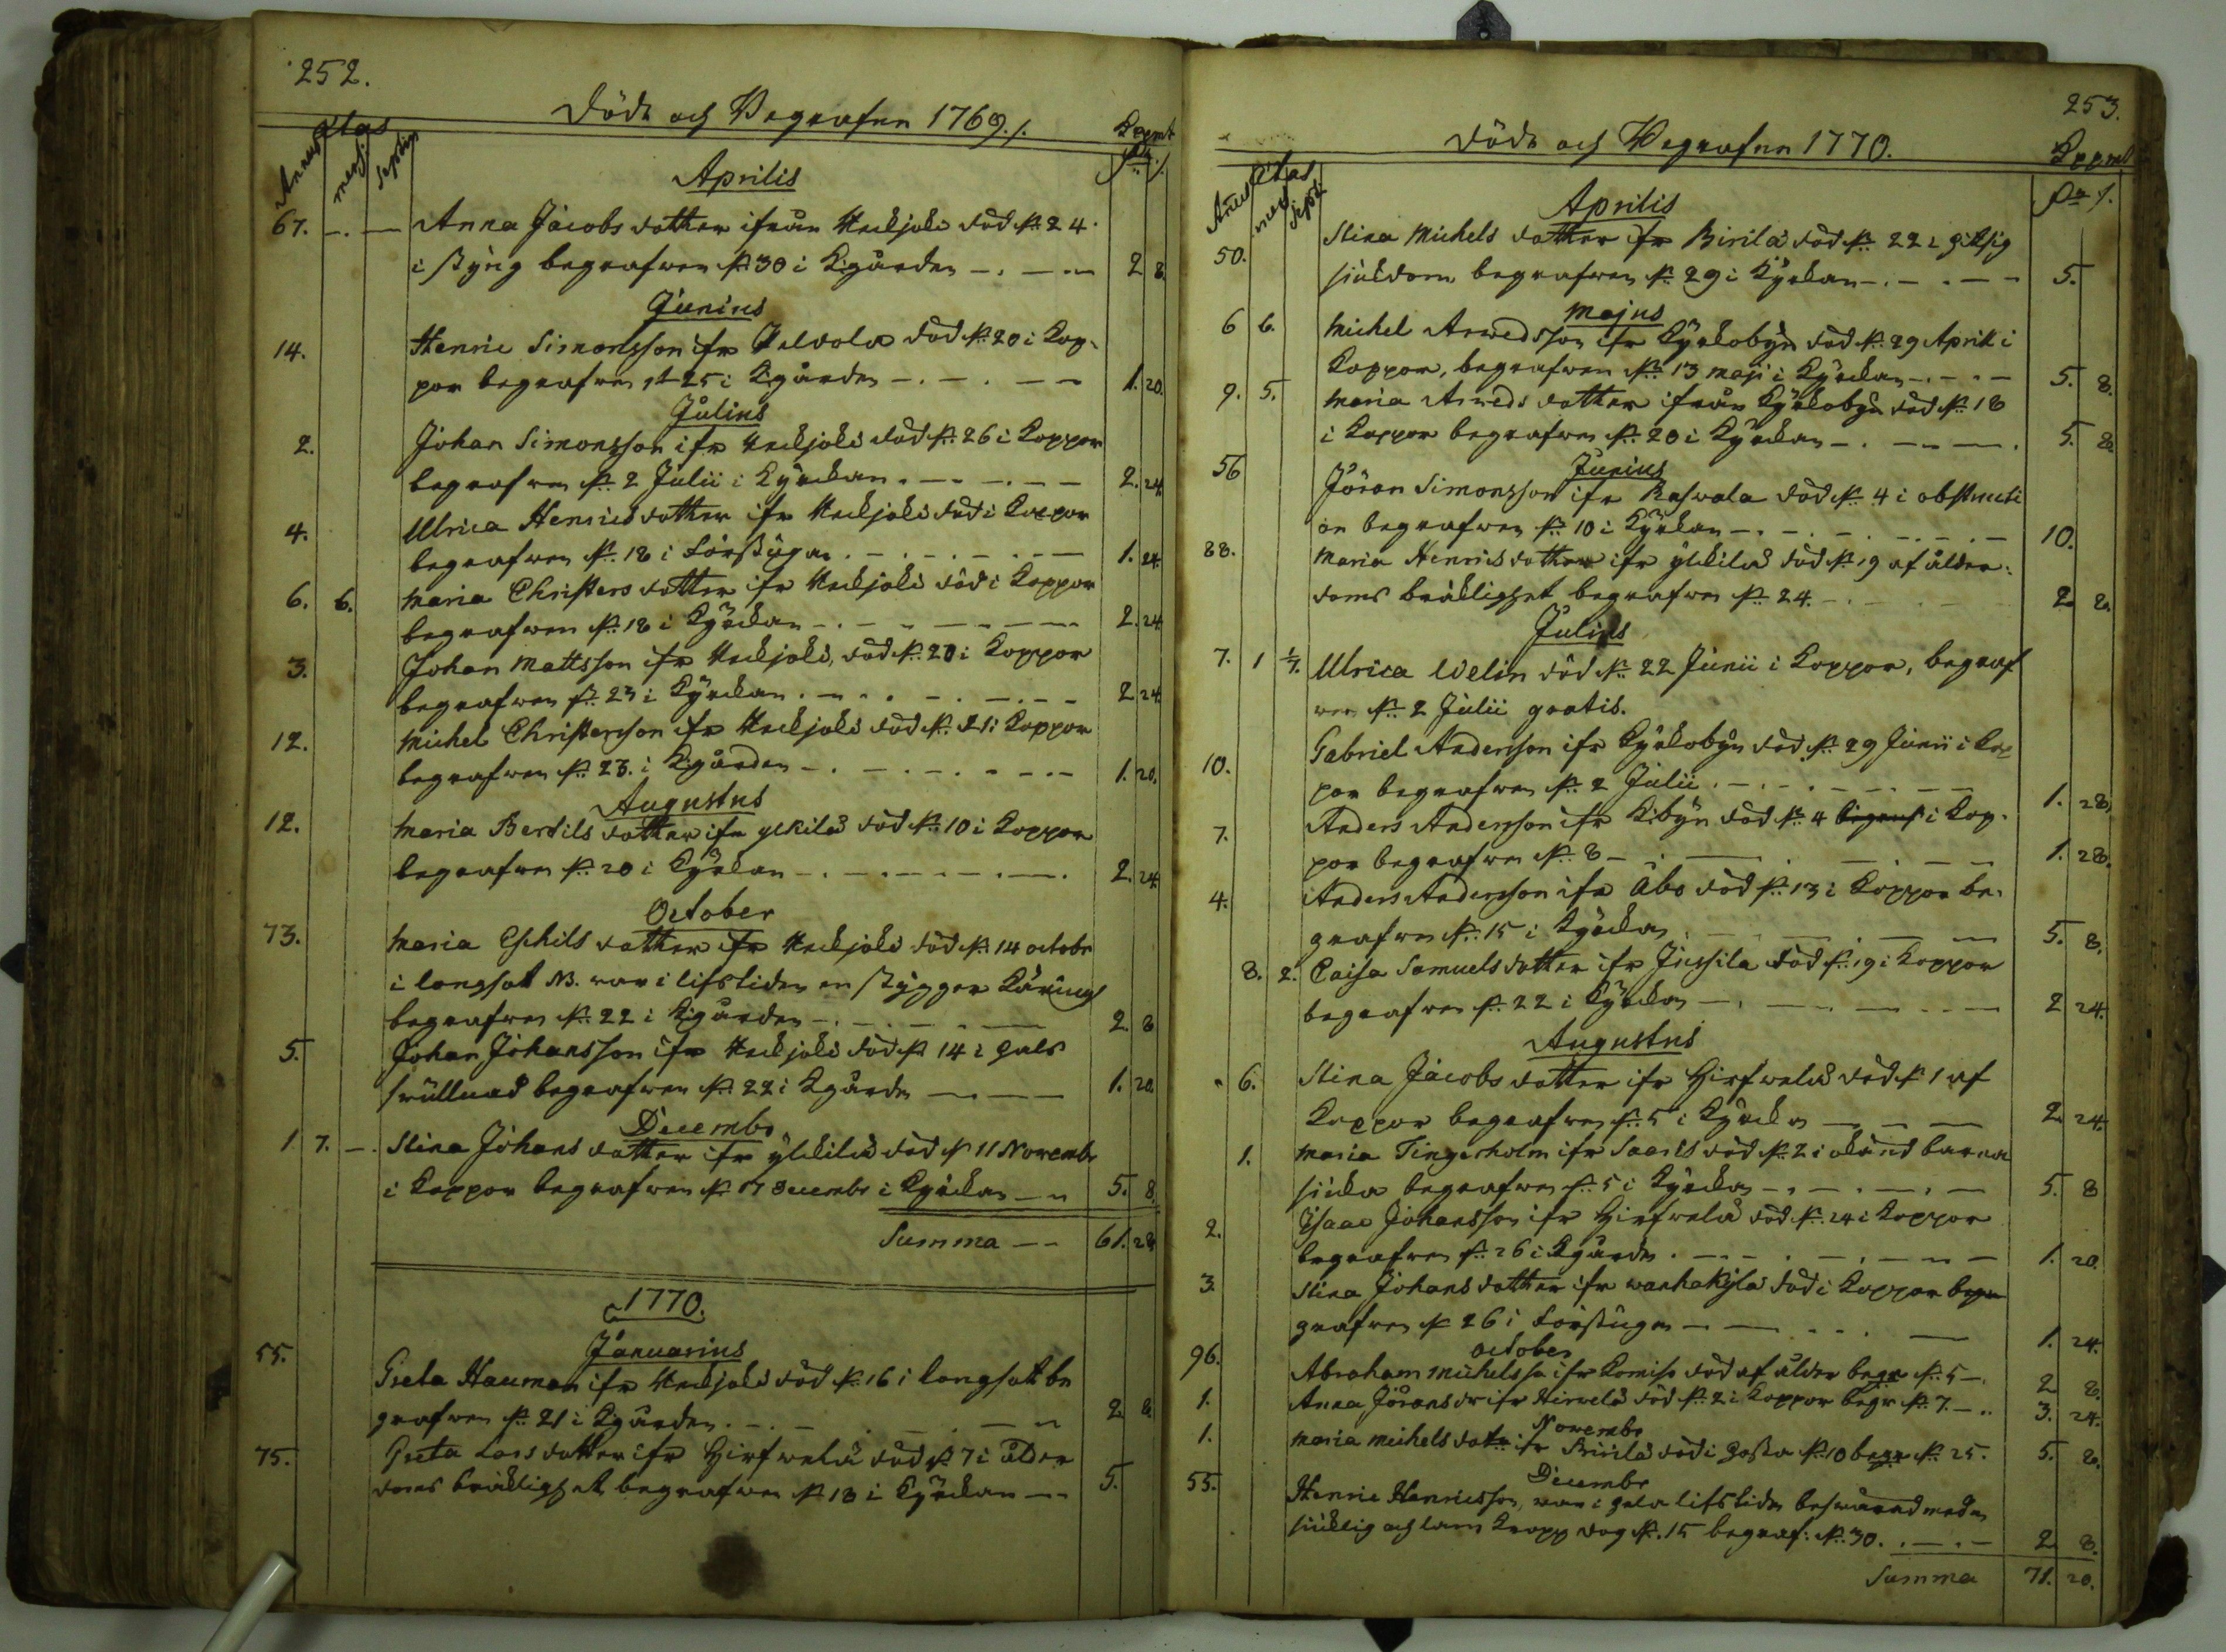 252.
Döde och Begrafne 1769./.
Ætas
Annus
mens
Septim
Aprilis
67. -. — Anna Jacobs dotter ifrån Heckjoki död d: 24.
i styng begrafwen d: 30 i K:gården 2 8.
Junius
14. Henric Simonsson ifr död d: 20 i Kop-
por begrafwen d: 25 i K:gården 1. 20.
Julius
2. Johan Simonsson ifr Heckjoki död d: 26 i Koppor
begrafwen d: 2 Julii i Kyrckan 2. 24.
4. Ulrica Henrics dotter ifr Heckjoki död i Koppor
begrafwen d: 18 i Förstugan 1. 24.
6. 6. Maria Christers dotter ifr Heckjoki död i Koppor
begrafwen d: 18 i Kyrckan 2. 24
3. Johan Mattsson ifr Heckjoki, död d: 20 i Koppor
begrafwen d: 23 i Kyrckan 2 24
12. Michel Christersson ifr Heckjoki död d: 21 i Koppor
begrafwen d: 23. i K:gården 1. 20.
Augustus
12. Maria Bertils dotter ifr ylkilä död d: 10 i Koppor
begrafwen d: 20 i Kyrkan 2. 24.
October
73. Maria Eskils dotter ifr Heckjoki död d: 14 octobr
i langsot NB. war i lifstiden en stygger Käring
begrafwen d: 22 i K:gården 2. 8
5. Johan Johansson ifr Heckjoki död d: 14 i hals
swullnad begrafwen d: 22 i Kgården 1. 20.
Decembr
1 7. -. Stina Johans dotter ifr ylkilä död d: 11 Novembr
i Koppor begrafwen d: 17 Decembr i Kyrckan 5. 8.
Summa — 61. 28
1770.
Januarius
55. Greta Hauman ifr Heckjoki död d: 16 i langsot be
grafwen d: 21 i Kgården 2 8.
75. Greta Lars dotter ifr Hirfwelä död d: 7 i ålder
doms bräcklighet begrafwen d: 13 i Kyrckan 5.
253.
Döde och Begrafne 1770.
Ætas
Annus
mens
Sept:
Aprilis
50. Stina Michels dotter ifr Birilä död d: 22 i hitsig
siukdom begrafwen d: 29 i Kyrkan 5.
Majus
6 6. Michel Arwedsson ifr Kyrkobyn död d: 29 April i
Koppor, begrafwen d: 13 maji i Kyrckan 5. 8.
9. 5. Maria Arweds dotter ifrån Kyrkobyn död d: 18
i Koppor begrafwen d: 20 i Kyrckan 5. 8.
Junius
56 Jöran Simonsson ifr Raswala död d: 4 i obstructi
on begrafwen d: 10 i Kyrkan 10.
88. Maria Henrics dotter ifr ylkilä död d: 19 af ålder-
doms bräcklighet begrafwen d: 24. 2. 8.
Julius
7. 1 1/7. Ulrica Welin död d: 22 Junii i Koppor, begraf
wen d: 2 Julii gratis.
10. Gabriel Andersson ifr Kyrkobyn död d: 29 Junii i Kop
por begrafwen d: 2 Julii 1. 28.
7. Anders Andersson ifr K:byn död d: 4 begraf i Kop-
por begrafwen d: 8 1. 28.
4. Anders Andersson ifr Åbo död d: 13 i Koppor be-
grafwen d: 15 i Kyrckan 5. 8.
8. 2. Caisa Samuels dotter ifr Jussila död d: 19 i Koppor
begrafwen d: 22 i Kyrckan 2 24.
Augustus
6. Stina Jacobs dotter ifr Hirfwelä död d: 1 af
Koppor begrafwen d: 5 i Kyrckan 2 24.
1. Maria Tingerholm ifr Saaris död d: 2 i okänd barna
siuka begrafwen d: 5 i Kyrckan 5. 8
2. Isaac Johansson ifr Hirfwelä död d: 24 i Koppor
begrafwen d: 26 i Kgården 1. 20.
3. Stina Johans dotter ifr wanhakylä död i Koppor begra
grafwen d: 26 i Förstugan 1. 24.
October
96. Abraham Michelsson ifr död af ålder begr d: 5 2 8.
1. Anna Jörans dr ifr Hirwelä död d: 2 i Koppor begr d: 7. 3. 24.
Novembr
1. Maria Michels dotr: ifr Birilä död i hosta d: 10 begr d: 25. 5. 8.
Decembr
55. Henric Henricsson, war i hela lifstiden beswärad med en
siuklig och lam Kropp dog d: 15 begraf: d: 30. 2 8.
Summa 71. 20.